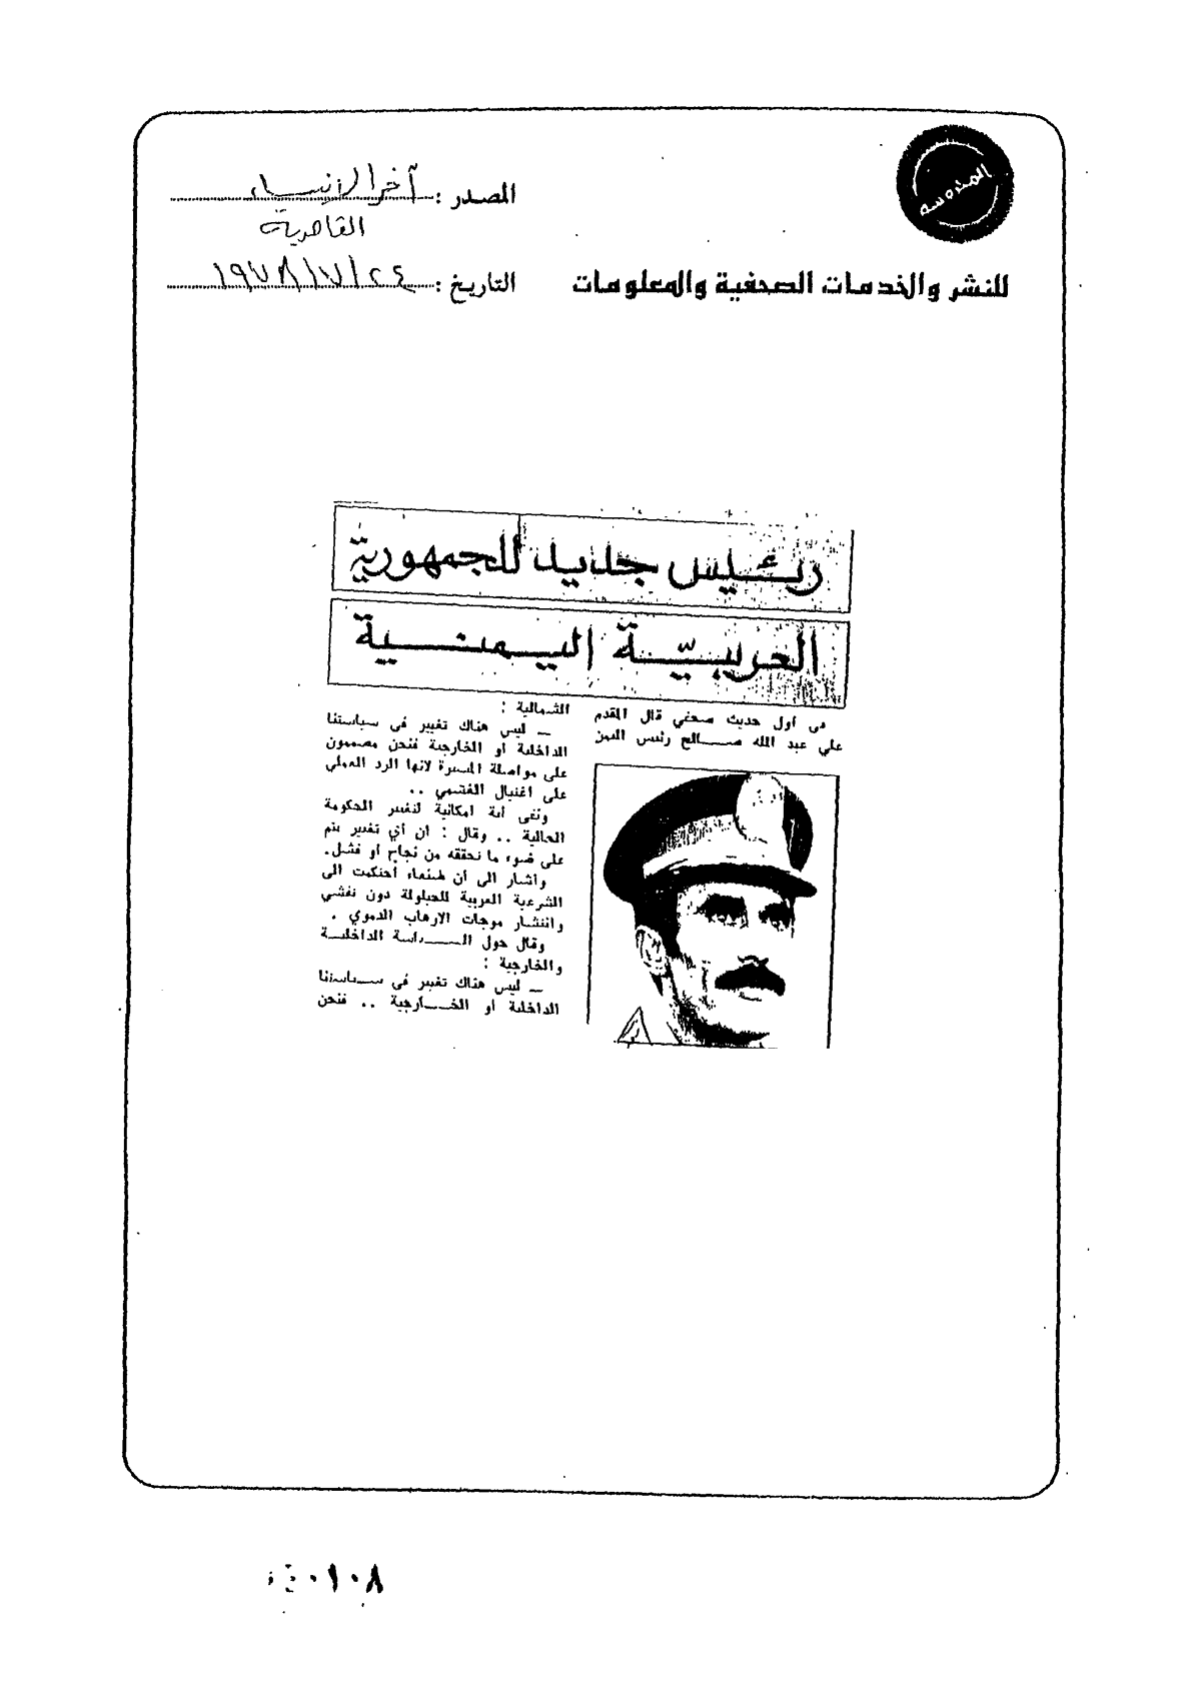 المحروسه
للنشر والخدمات الصحفية والمعلومات
المصدر : آخر الأنباء
القاهرية
التاريخ : ٢٤/٧/١٩٧٨
رئيس جديد للجمهورية
العربيّة اليمنية
في أول حديث صحفي قال المقدم
علي عبد الله صالح رئيس اليمن
الشمالية :
ـ ليس هناك تغيير في سياستنا
الداخلية او الخارجية فنحن مصممون
على مواصلة المسيرة لانها الرد العملي
على اغتيال الغشمي ..
ونفى أية امكانية لتغيير الحكومة
الحالية .. وقال : ان أي تغيير يتم
على ضوء ما نحققه من نجاح او فشل .
واشار الى ان صنعاء أحتكمت الى
الشرعية العربية للحيلولة دون تفشي
وانتشار موجات الارهاب الدموي .
وقال حول السياسة الداخلية
والخارجية :
ـ ليس هناك تغيير في سياستنا
الداخلية او الخارجية .. فنحن